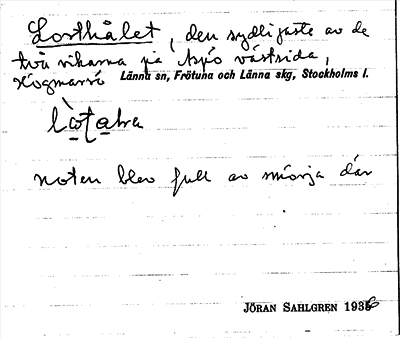 Lorthålet, den sydligaste av de
två vikarna på Aspö västsida,
Högmarsö Länna sn, Frötuna och Länna skg, Stockholms l.
noten blev full av mörja där
JÖRAN SAHLGREN 1936